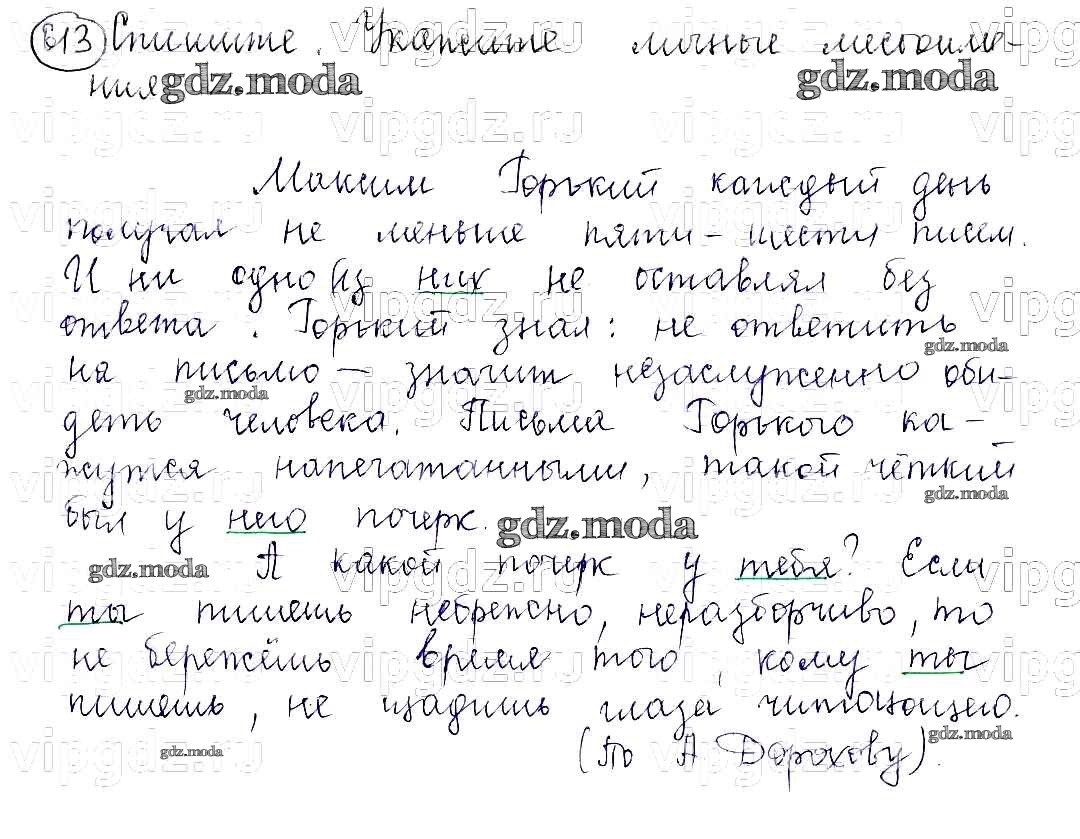 613 Спишите. Укажите личные местоиме-
ния gdz.moda gdz.moda
Максим Горький каждый день
получал не меньше пяти-шести писем.
И ни одно из них не оставлял без
ответа. Горький знал: не ответить
на письмо — значит незаслуженно оби-
деть человека. Письма Горького ка-
жутся напечатанными, такой чёткий
был у него почерк. gdz.moda
gdz.moda А какой почерк у тебя? Если
ты пишешь небрежно, неразборчиво, то
не бережёшь время того, кому ты
пишешь, не щадишь глаза читающего.
(По А Дорохову).